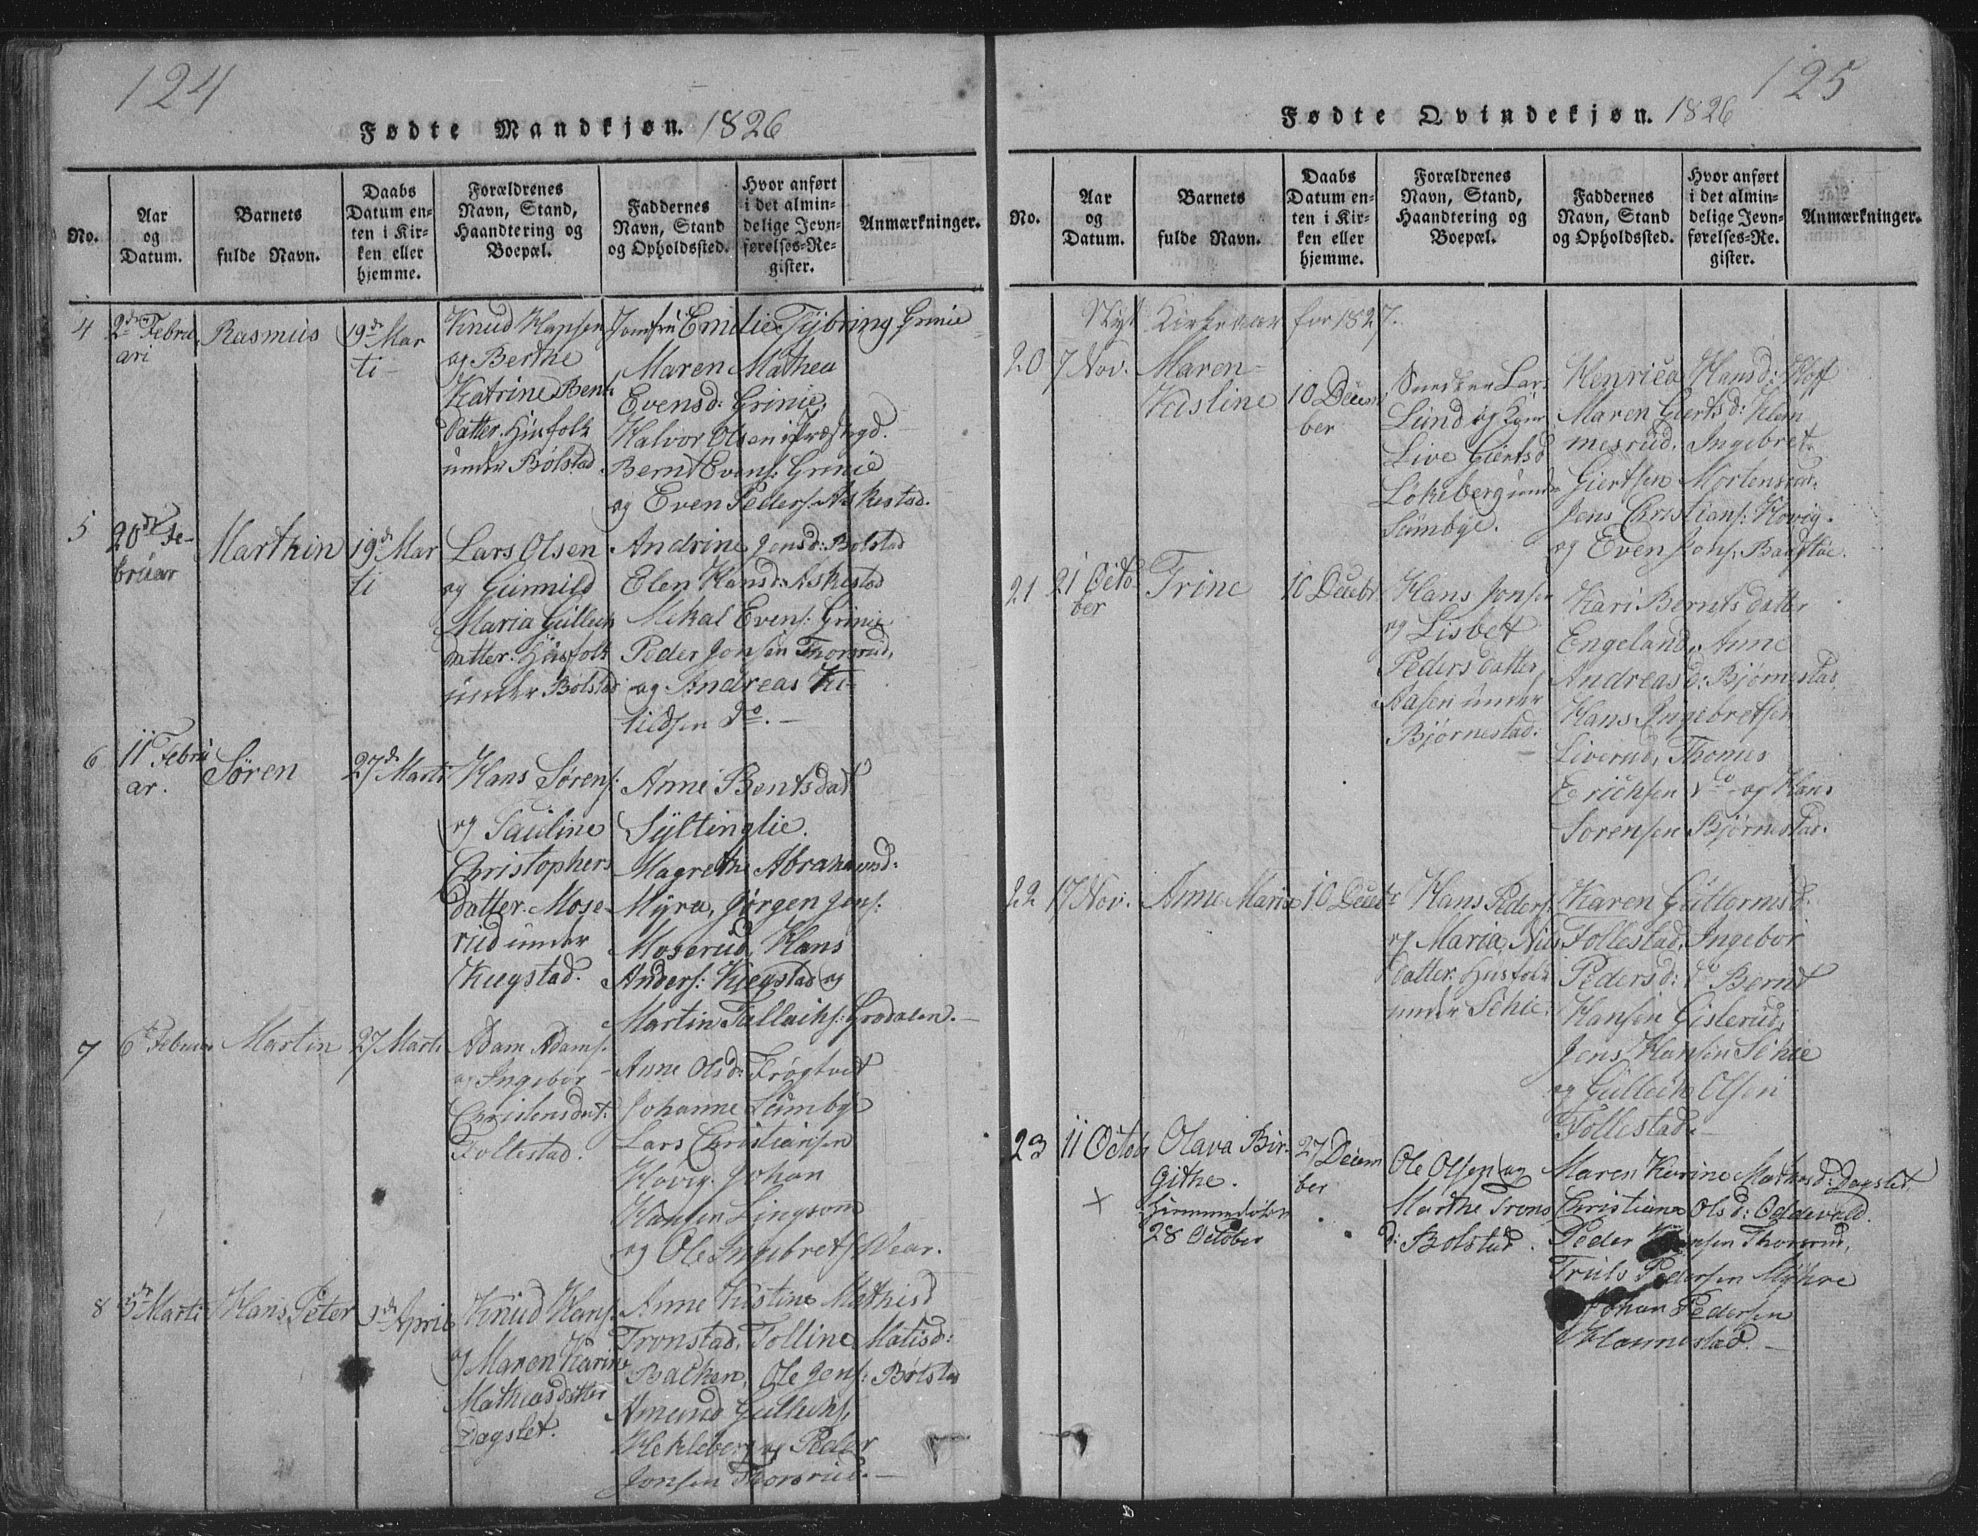 124
Fødte Mandkjøn. 1826
No.
Aar
og
Datum.
Barnets
fulde Navn.
Daabs
Datum en-
ten i Kir-
ken eller
hjemme.
Forældrenes
Navn, Stand,
Haandtering og
Boepæl.
Faddernes
Navn, Stand
og Opholdssted.
Hvor anført
i det almin-
delige Jevn-
førelses-Re-
gister.
Anmærkninger.
4
2den Febru
ari
Rasmus
19de Mar
ti
Knud Hansen
og Berthe
Katrine Bent
datter. Husfolk
under Bølstad.
Jomfru Emilie Tybring Grinie
Maren Mathea
Evensd: Grinie,
Halvor Olsen i Præstegd.
Bernt Evens: Grinie
og Even Peders: Askestad.
5
20de Fe-
bruar
Marthin
19de Mar
ti
Lars Olsen
og Gunnild
Maria Gulleich
datter. Husfolk
under Bølstad
Andrine Jensd: Bølstad
Elen Hansd: Askestad
Mikal Evens: Grinie
Peder Jonsen Thorsrud,
og Andreas Ke-
tildsen Do. —
6
11 Febru
ar.
Søren
27de Marti
Hans Sørens:
og Pauline
Christophers
datter. Mose-
rud under
Kiegstad.
Anne Bentsdat
Syltinglie.
Magrethe Abrahamsd:
Myra, Jørgen Jens:
Moserud, Hans
Anders: Kiegstad og
Martin Tallachs: Grødalen. —
7
6te Februar
Martin
27 Marti
Adam Adams.
og Ingebor
Christensdat:
Follestad.
Anne Olsd: Frøgtvet
Johanne Lumbye
Lars Christiansen
Hovig. Johan
Hansen Lingsom
og Ole Ingebrets Wear.
8
5te Marti
Hans Peter
1de April
Knud Hans:
og Maren Karine
Mathiasdatter
Dagslet.
Anne Kistine Mathisd
Tronstad, Tolline Matisd:
Bakken, Ole Jens: Bølstad
Amund Gulleichs,
Hekleberg og Peder
Jonsen Thorsrud. —
125
Fødte Qvindekjøn. 1826
No.
Aar
og
Datum.
Barnets
fulde Navn.
Daabs
Datum en-
ten i Kir-
ken eller
hjemme.
Forældrenes
Navn, Stand,
Haandtering og
Boepæl.
Faddernes
Navn, Stand
og Opholdssted.
Hvor anført
i det almin-
delige Jevn-
førelses-Re.
gister.
Anmærkninger.
Nyt Kirkeaar for 1827.
20
7 Nov.
Maren-
Kasline
10 Decem
ber
Snedker Lars
Lund og
Live Giertsd
Løkeberg under
Lumbye.
Henrica Hansd: Hoff
Maren Giertsd: Klem
mesrud. Ingebret
Giertsen Mortensrud.
Jens Christians: Hovig.
og Even Jons: Baadstøe.
21
21 Octo
ber
Trine
10 Decebr
Hans Jonsen
og Lisbet
Pedersdatter,
Aasen under
Bjørnestad.
Kari Berntsdatter
Engeland, Anne
Andreasd: Bjørnestad
Hans Ingebretsen
Liverud, Thomes
Erichsen do og Hans
Sorensen Bjørnestad.
22
17 Nov.
Anne Maria
10 Decebr
Hans Peders:
og Maria Nils
datter. Husfolk
under Sehie.
Karen Guttormsd:
Follestad, Ingebor
Pedersd: do Bernt
Hansen Gislerud,
Jens Hansen Sehie
og Gulleich Olsen
Follestad. —
23
11 Octobr
×
Olava Bir-
githe.
Hiemmedøbt
28 October
27 Decem
ber
Ole Olsen og
Marthe Trons
d: Bolstad.
Maren Karine Mathisd: Dagslet
Christiane Olsd: Oddevald.
Peder Hansen Thorsrud,
Truls Pedersen Myhre
Johan Pedersen
Hannestad. —